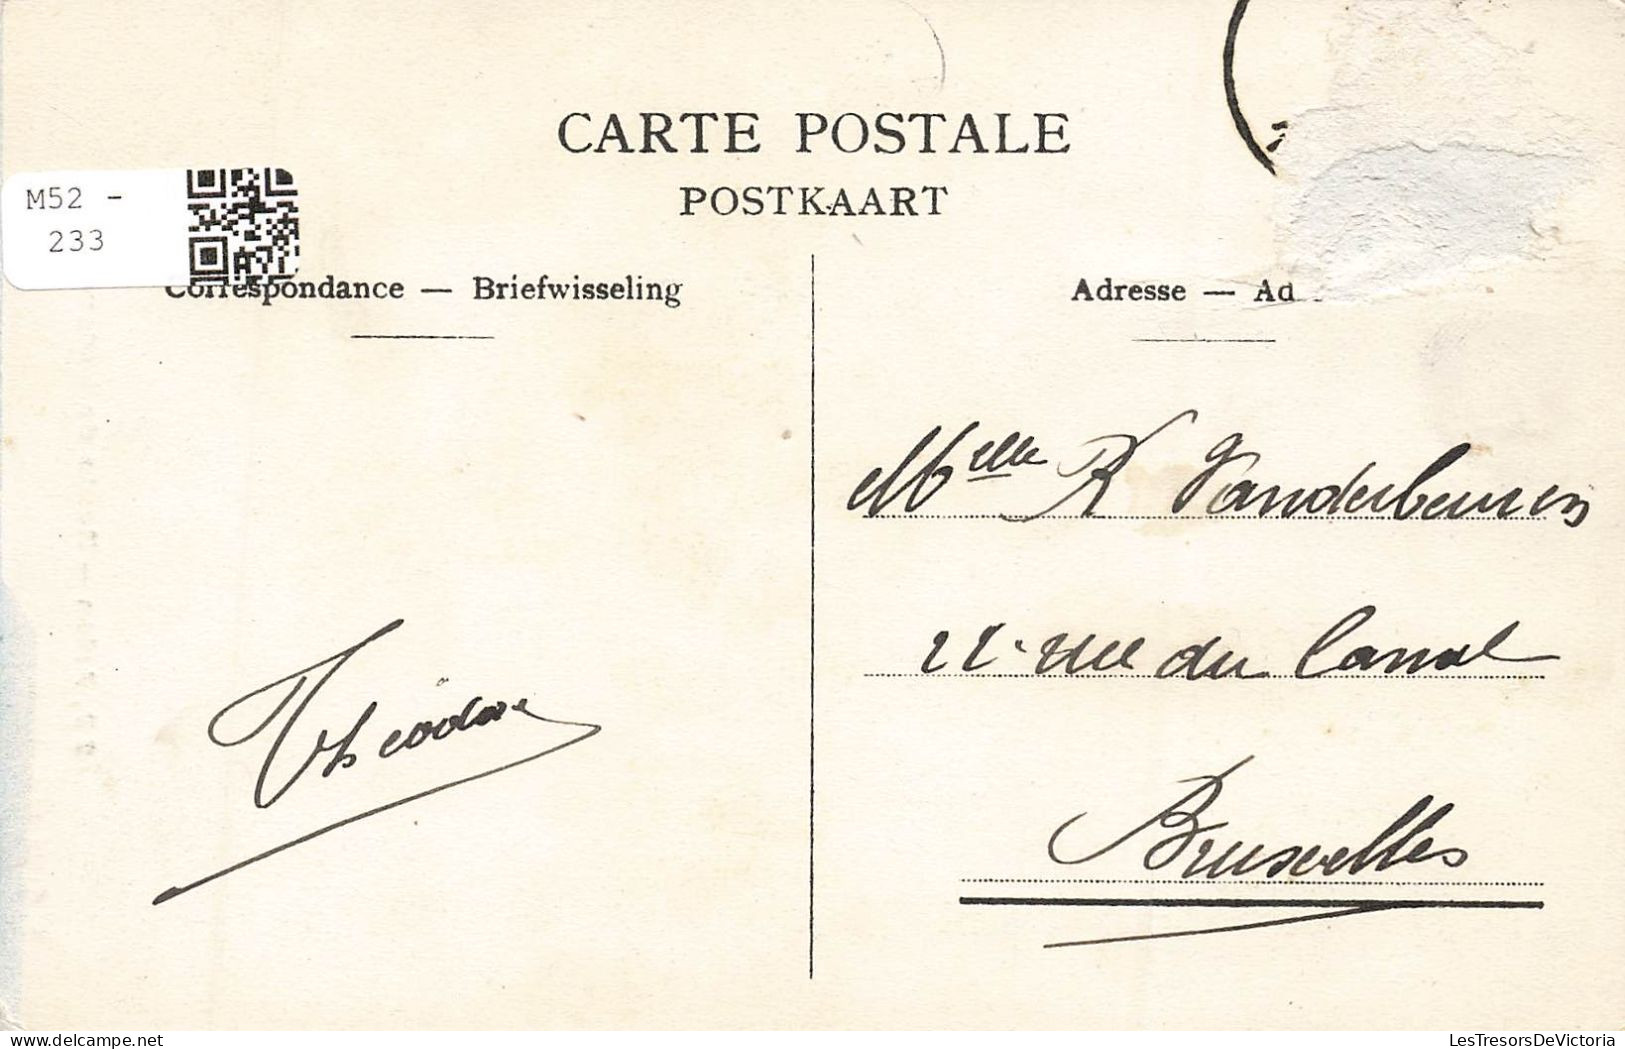 CARTE POSTALE
POSTKAART
M52 -
233
Correspondance — Briefwisseling
Adresse — Ad
Melle R Vanderbeuren
22 rue du Canal
Bruxelles
Théodore
delcampe.net
LesTresorsDeVictoria